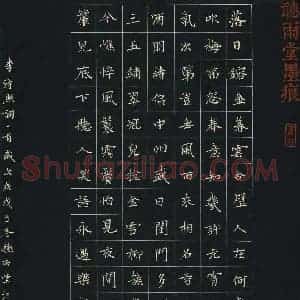 聽雨堂墨痕
落日鎔金暮雲合璧人在何
吹梅笛怨春意知幾許元宵
氣次第豈無風雨來相召香
朋詩侶中州盛日閨門多
三五鋪翠冠兒撚金雪柳簇
今憔悴風鬟霜鬢怕見夜間
簾兒底下聽人笑語永遇樂
李清照詞一首歲次戊戌
Shufaziliao.com